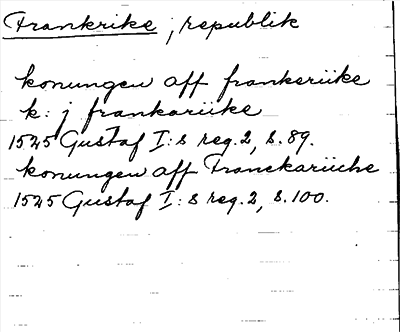 Frankrike ; republik
konungen aff frankeriike
k: j frankariike
1525 Gustaf I:s reg. 2, s. 89.
konungen aff Franckariiche
1525 Gustaf I:s reg. 2, s. 100.